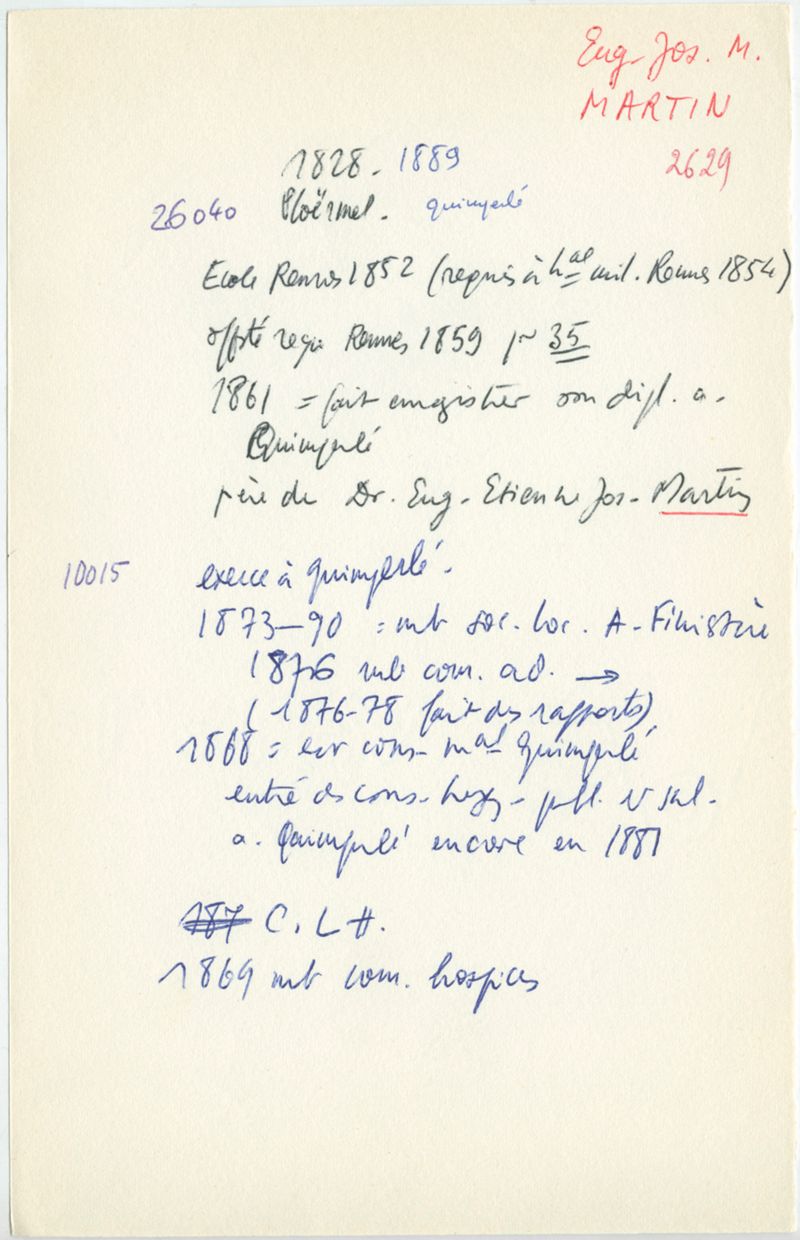 Eug. Jos. M.
MARTIN
2629
1828. 1889
26040 Ploërmel. Quimperlé
Ecole Rennes 1852 (requis à hal mil. Rennes 1854)
Rennes 1859 35
1861 = fait enregistrer son dipl. a.
Quimperlé
père du Dr. Eug. Etienne Jos. Martin
10015 exerce à Quimperlé.
1873-90 = mb soc. loc. A. Finistère
1876 mb com. ad. →
(1876-78 fait des rapports)
1868 = cons. mal Quimperlé
entré ds cons. hyg. publ. sal.
a. Quimperlé encore en 1881
187 C. L H.
1869 mb com. hospices